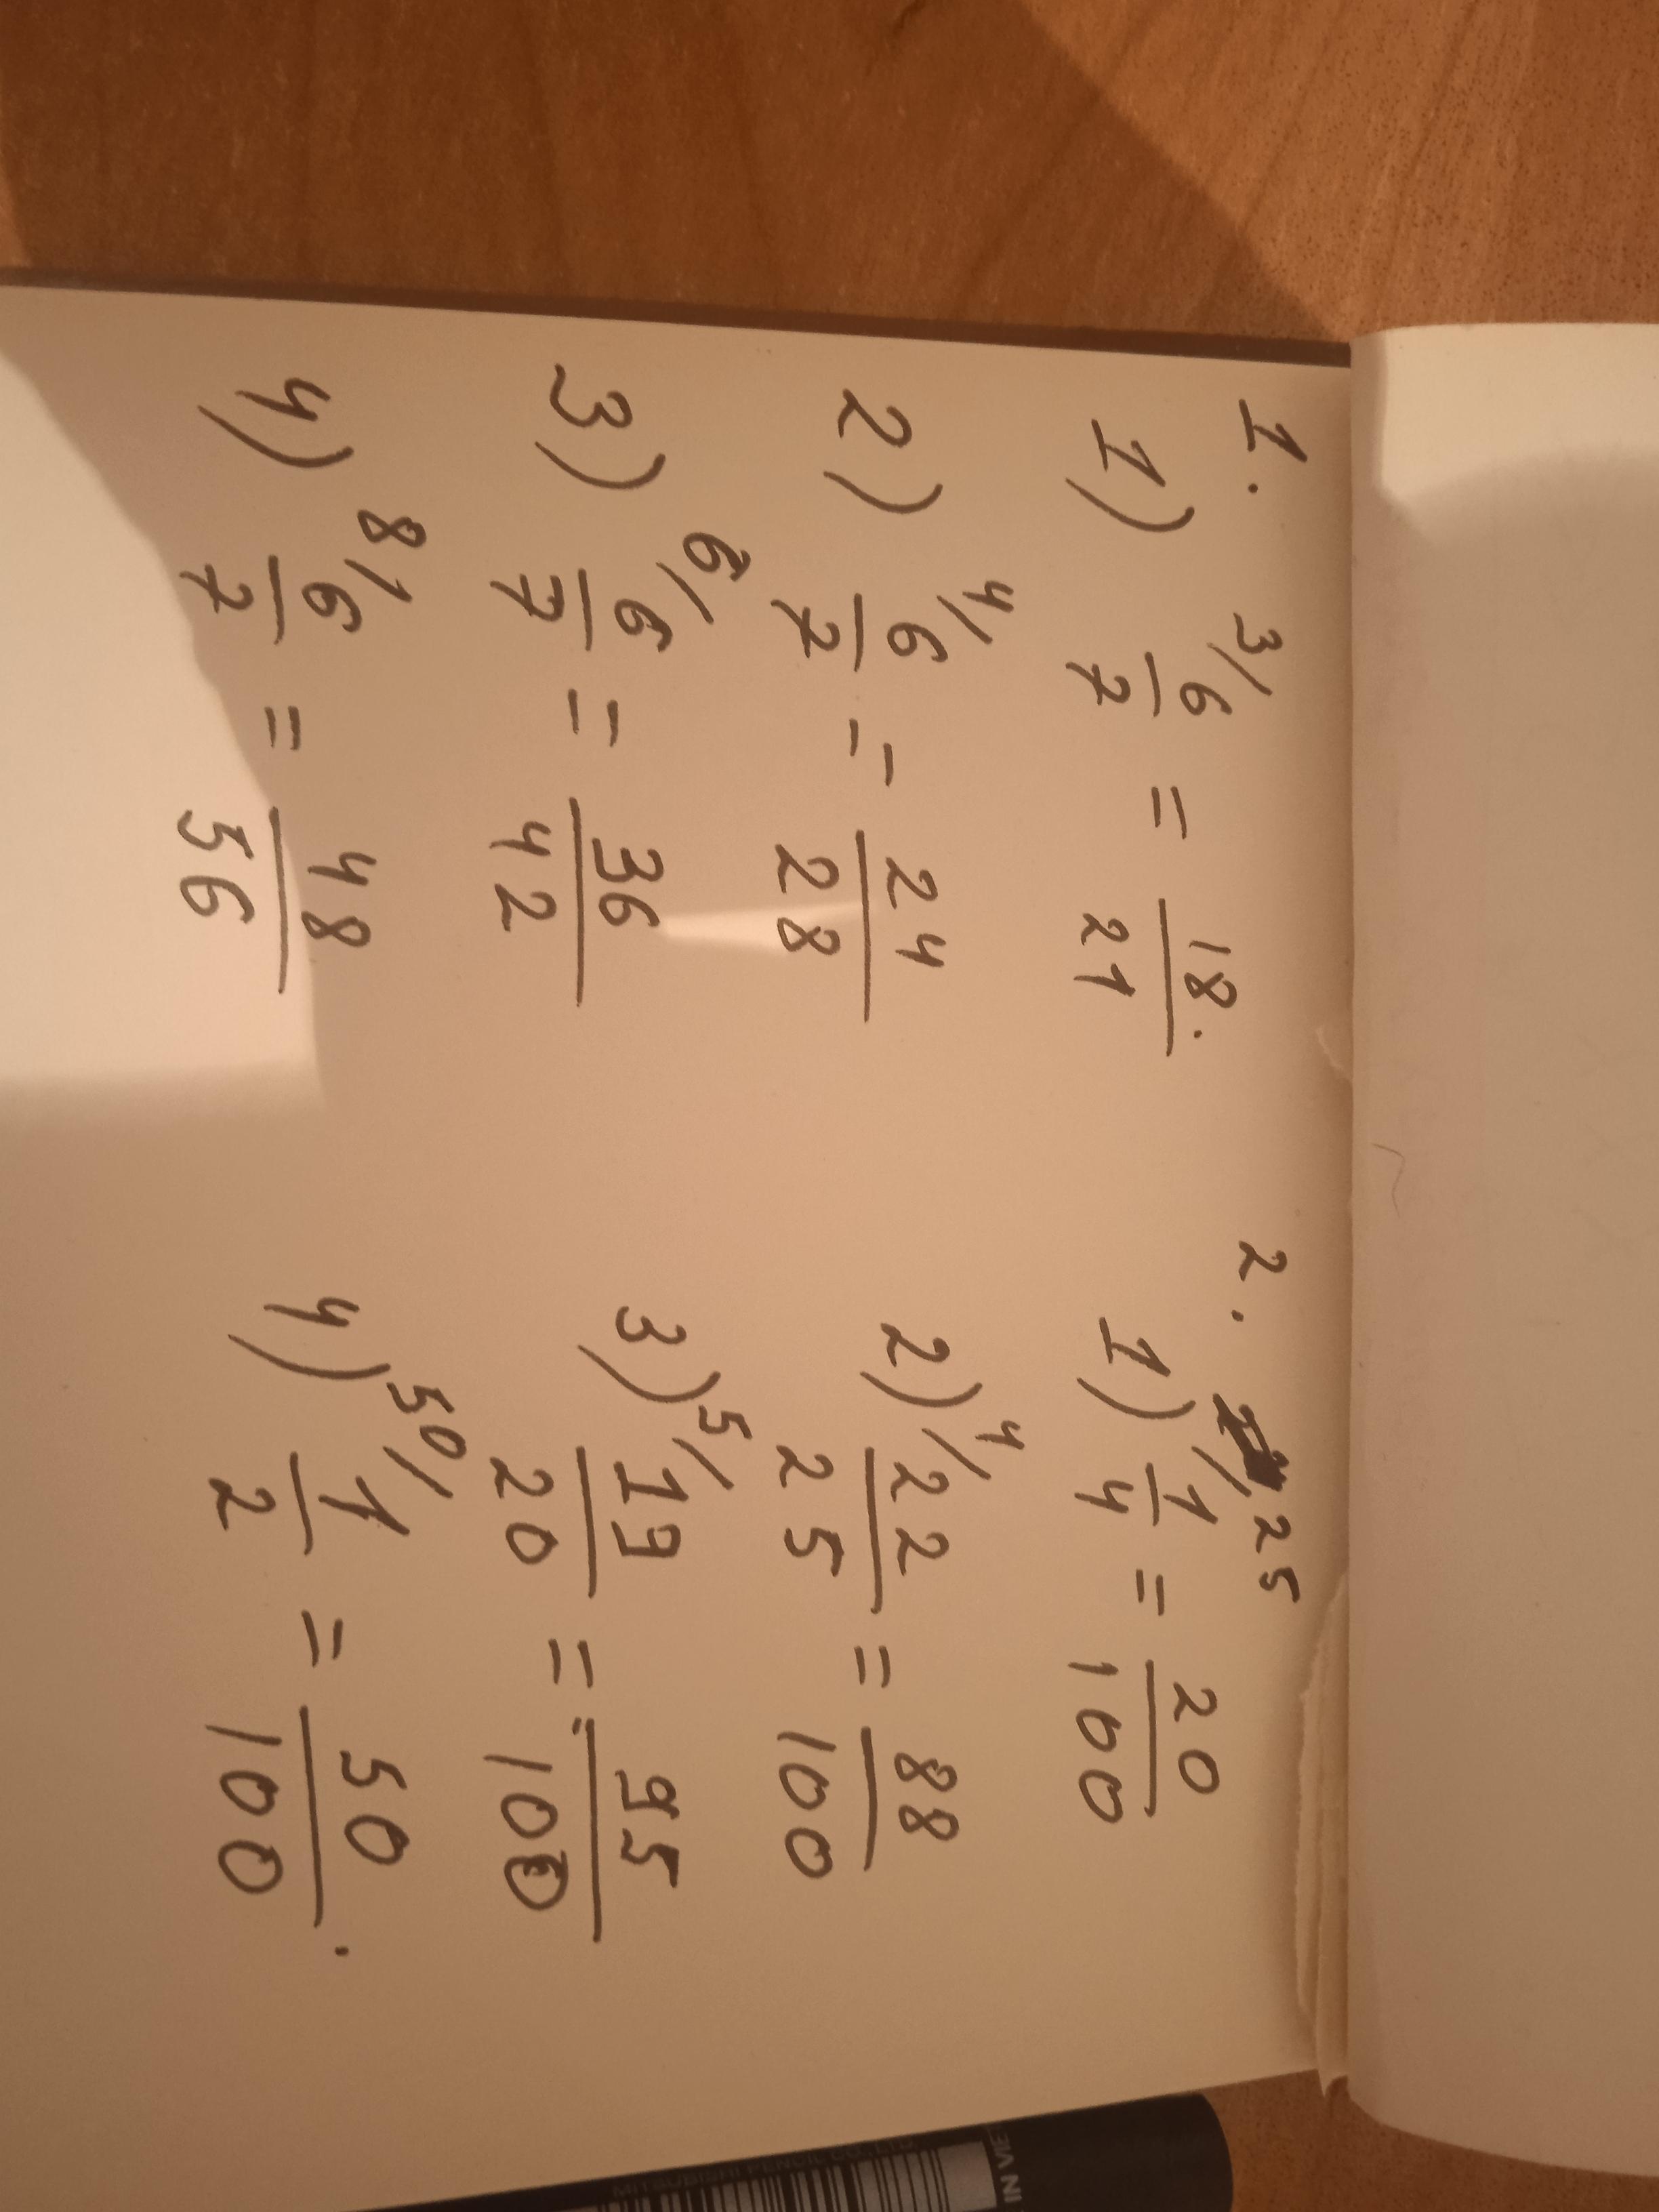 1.
1) 3/ 6/7 = 18/21
2) 4/ 6/7 = 24/28
3) 6/ 6/7 = 36/42
4) 8/ 6/7 = 48/56
2.
1) /25 1/4 = 20/100
2) 4/ 22/25 = 88/100
3) 5/ 19/20 = 95/100
4) 50/ 1/2 = 50/100.
MITSUBISHI PENCIL CO., LTD.